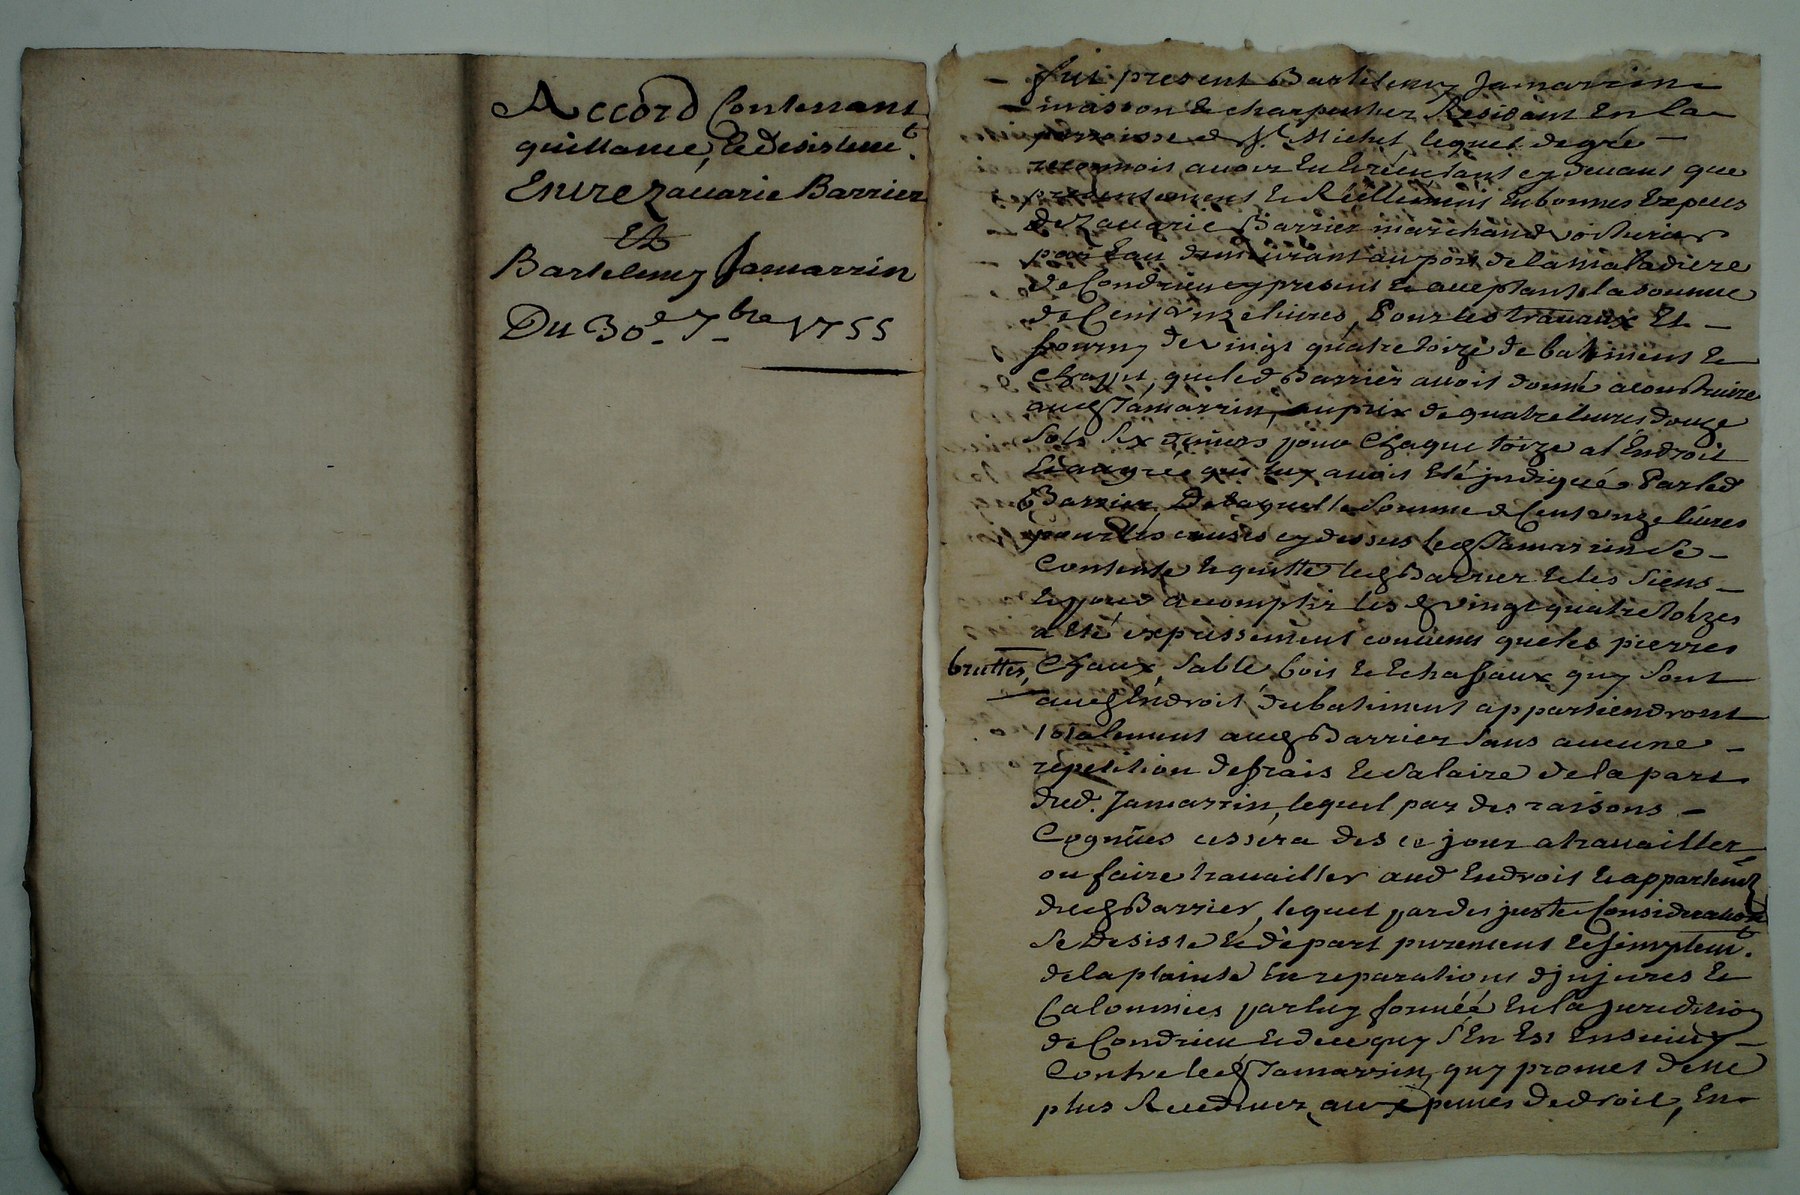 Accord Contenant
quittance, & desistem.t
Entre Zacarie Barrier
Et
Bartelemy Jamarrin
Du 30.e 7.bre 1755
fut present Bartelemy Jamarrin
masson & charpentier Residant En la
parroisse de St. Michel, lequel de gré
reconnois avoir Eu & recu tant cy devant que
presentement & Réellement En bonnes Especes
de Zacarie Barrier marchand voiturier
par Eau demeurant au port de la maladiere
de Condrieu cy present & acceptant, la somme
de Cent onze livres, Pour les travaux Et
fourny de vingt quatre toize de batiment &
, que led Barrier avoit donné a construire
aud Jamarrin, au prix de quatre livres douze
sols six deniers pour Chaque toize a l'Endroit
& qui luy avoit Eté jndiqué Par led
Barrier, De laquelle somme de Cent onze livres
pour les causes cy dessus led Jamarrin se
Contente & quitte led Barrier & les siens
& pour acomplir les d vingt quatre toizes
a Eté expressement convenu que les pierres
bruttes, Chaux, sable, bois & Echafaux quy sont
aud Endroit du batiment appartiendront
totalement aud Barrier sans aucune
repetition de frais & salaire de la part
dud. Jamarrin, lequel par des raisons
Cognües cessera des ce jour a travailler
ou faire travailler aud Endroit &
dud Barrier, lequel par des juste Consideration
se desiste & départ purement & simplem.t
de la plainte En reparations d'jnjures &
Calomnies par luy formée En la juridition
de Condrieu & de ce quy s'En Est Ensuivy
Contre led Jamarrin, quy promet de ne
plus Recidiver aux peines de droit, En